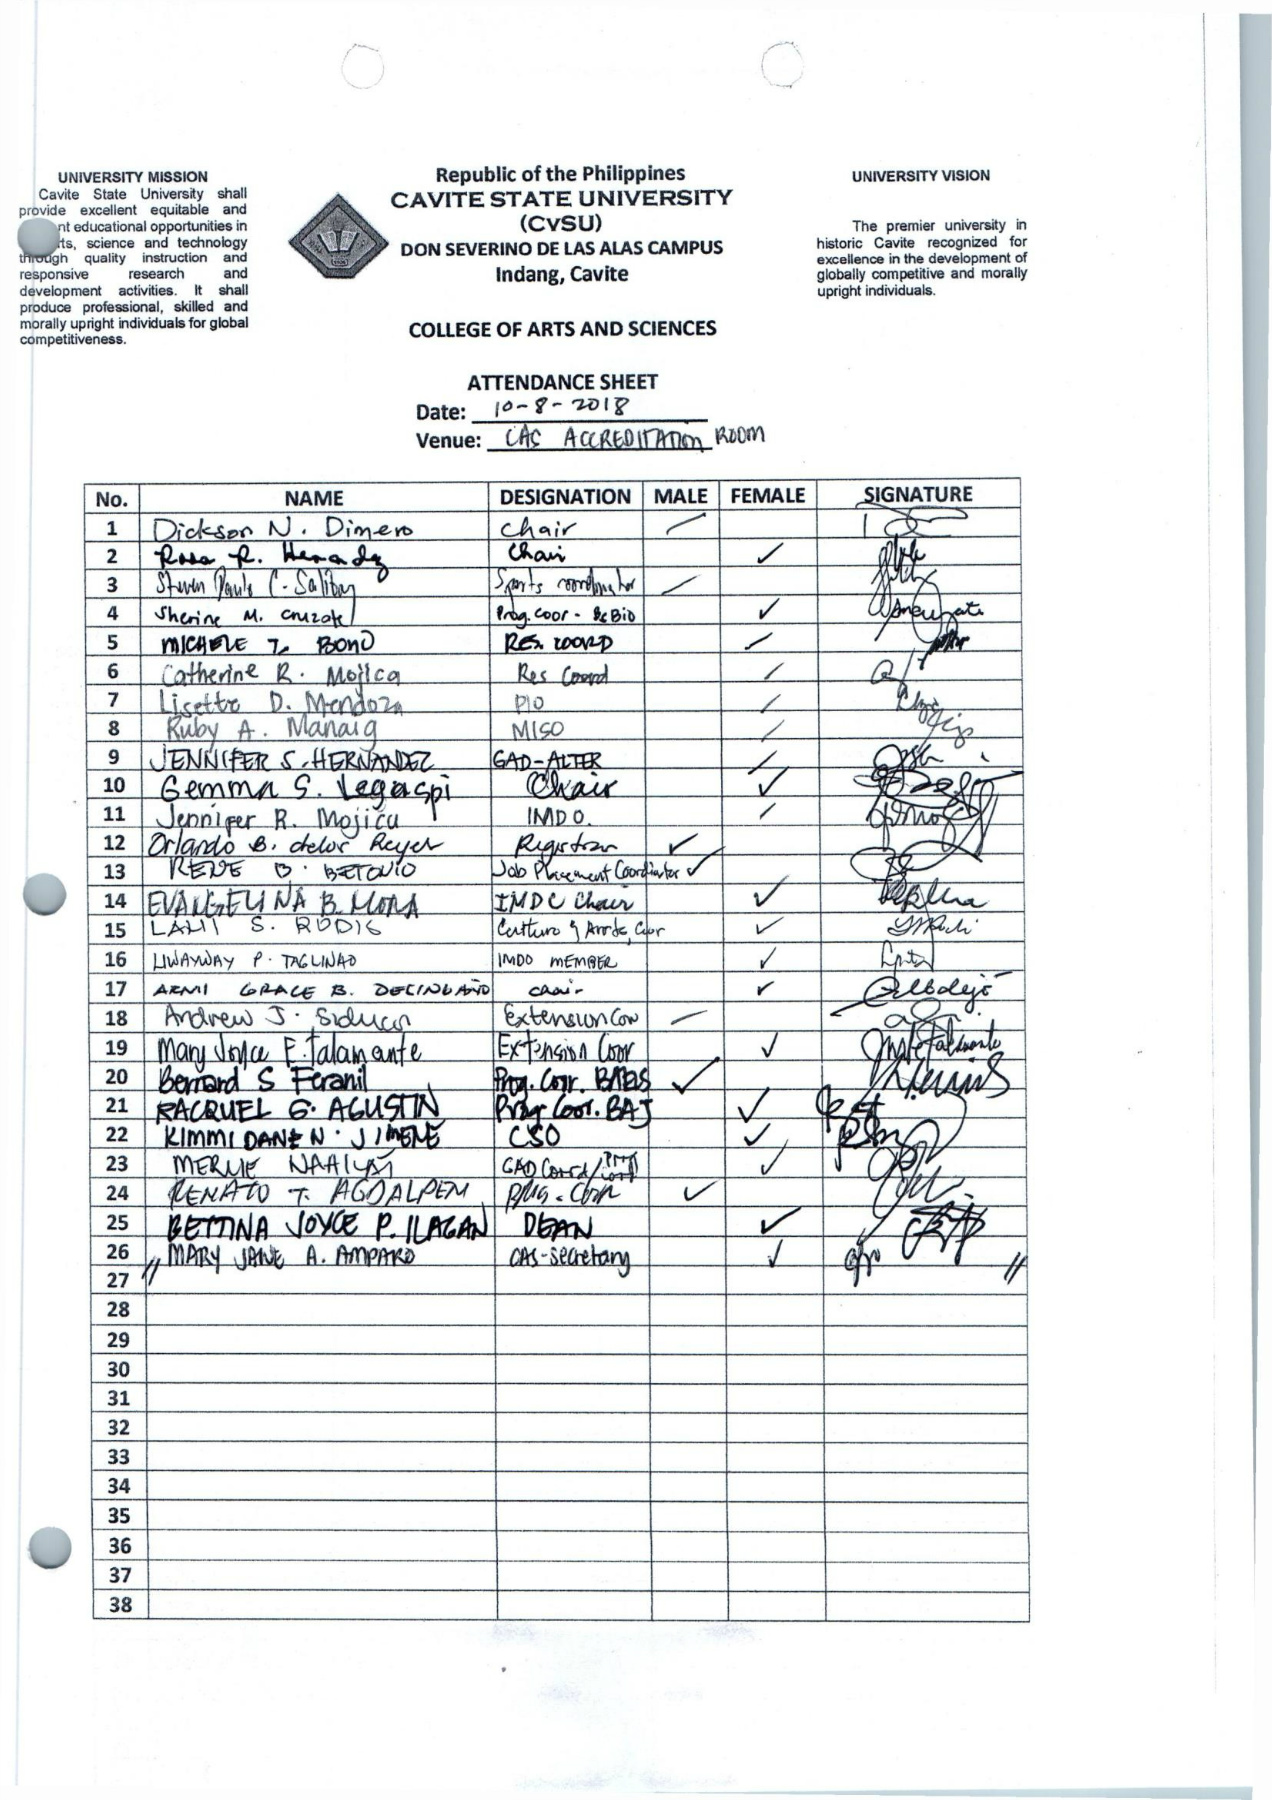 UNIVERSITY MISSION
Cavite State University shall
provide excellent equitable and
nt educational opportunities in
ts, science and technology
through quality instruction and
responsive research and
development activities. It shall
produce professional, skilled and
morally upright individuals for global
competitiveness.
Republic of the Philippines
CAVITE STATE UNIVERSITY
(CvSU)
DON SEVERINO DE LAS ALAS CAMPUS
Indang, Cavite
COLLEGE OF ARTS AND SCIENCES
UNIVERSITY VISION
The premier university in
historic Cavite recognized for
excellence in the development of
globally competitive and morally
upright individuals.
ATTENDANCE SHEET
Date: 10-8-2018
Venue: CAS ACCREDITATION ROOM
No. NAME DESIGNATION MALE FEMALE SIGNATURE
1 Dickson N. Dimero Chair
2 Rosa R. Chair
3 Steven C. Sports coordinator
4 Sherine M. Cruzate Prog. Coor - Bio
5 MICHELE T. BONO RES. COORD
6 Catherine R. Mojica Res Coord
7 Lisette D. Mendoza PIO
8 Ruby A. Manaig MISO
9 JENNIFER S. HERNANDEZ GAD-ALTER
10 Gemma S. Legaspi Chair
11 Jennifer R. Mojica IMDO.
12 Orlando B. delos Reyes Registrar
13 RENE B. BETONIO Job Placement Coordinator
14 EVANGELINA B. MORA IMDC Chair
15 LANI S. RODIS Culture & Arts Coor
16 LIWAYWAY P. TAGLINAO IMDO MEMBER
17 ARMI GRACE B. Chair
18 Andrew J. Siducon Extension
19 Mary Joyce E. Talamante Extension Coor
20 Bernard S Feranil Prog. Corr.
21 RACQUEL G. AGUSTIN Prog Coor. BAJ
22 KIMMI DANE N. CSO
23 GAD Coord/
24 RENATO T. AGDALPEN
25 BETTINA JOYCE P. ILAGAN DEAN
26 MARY JANE A. AMPARO CAS-secretary
27
28
29
30
31
32
33
34
35
36
37
38